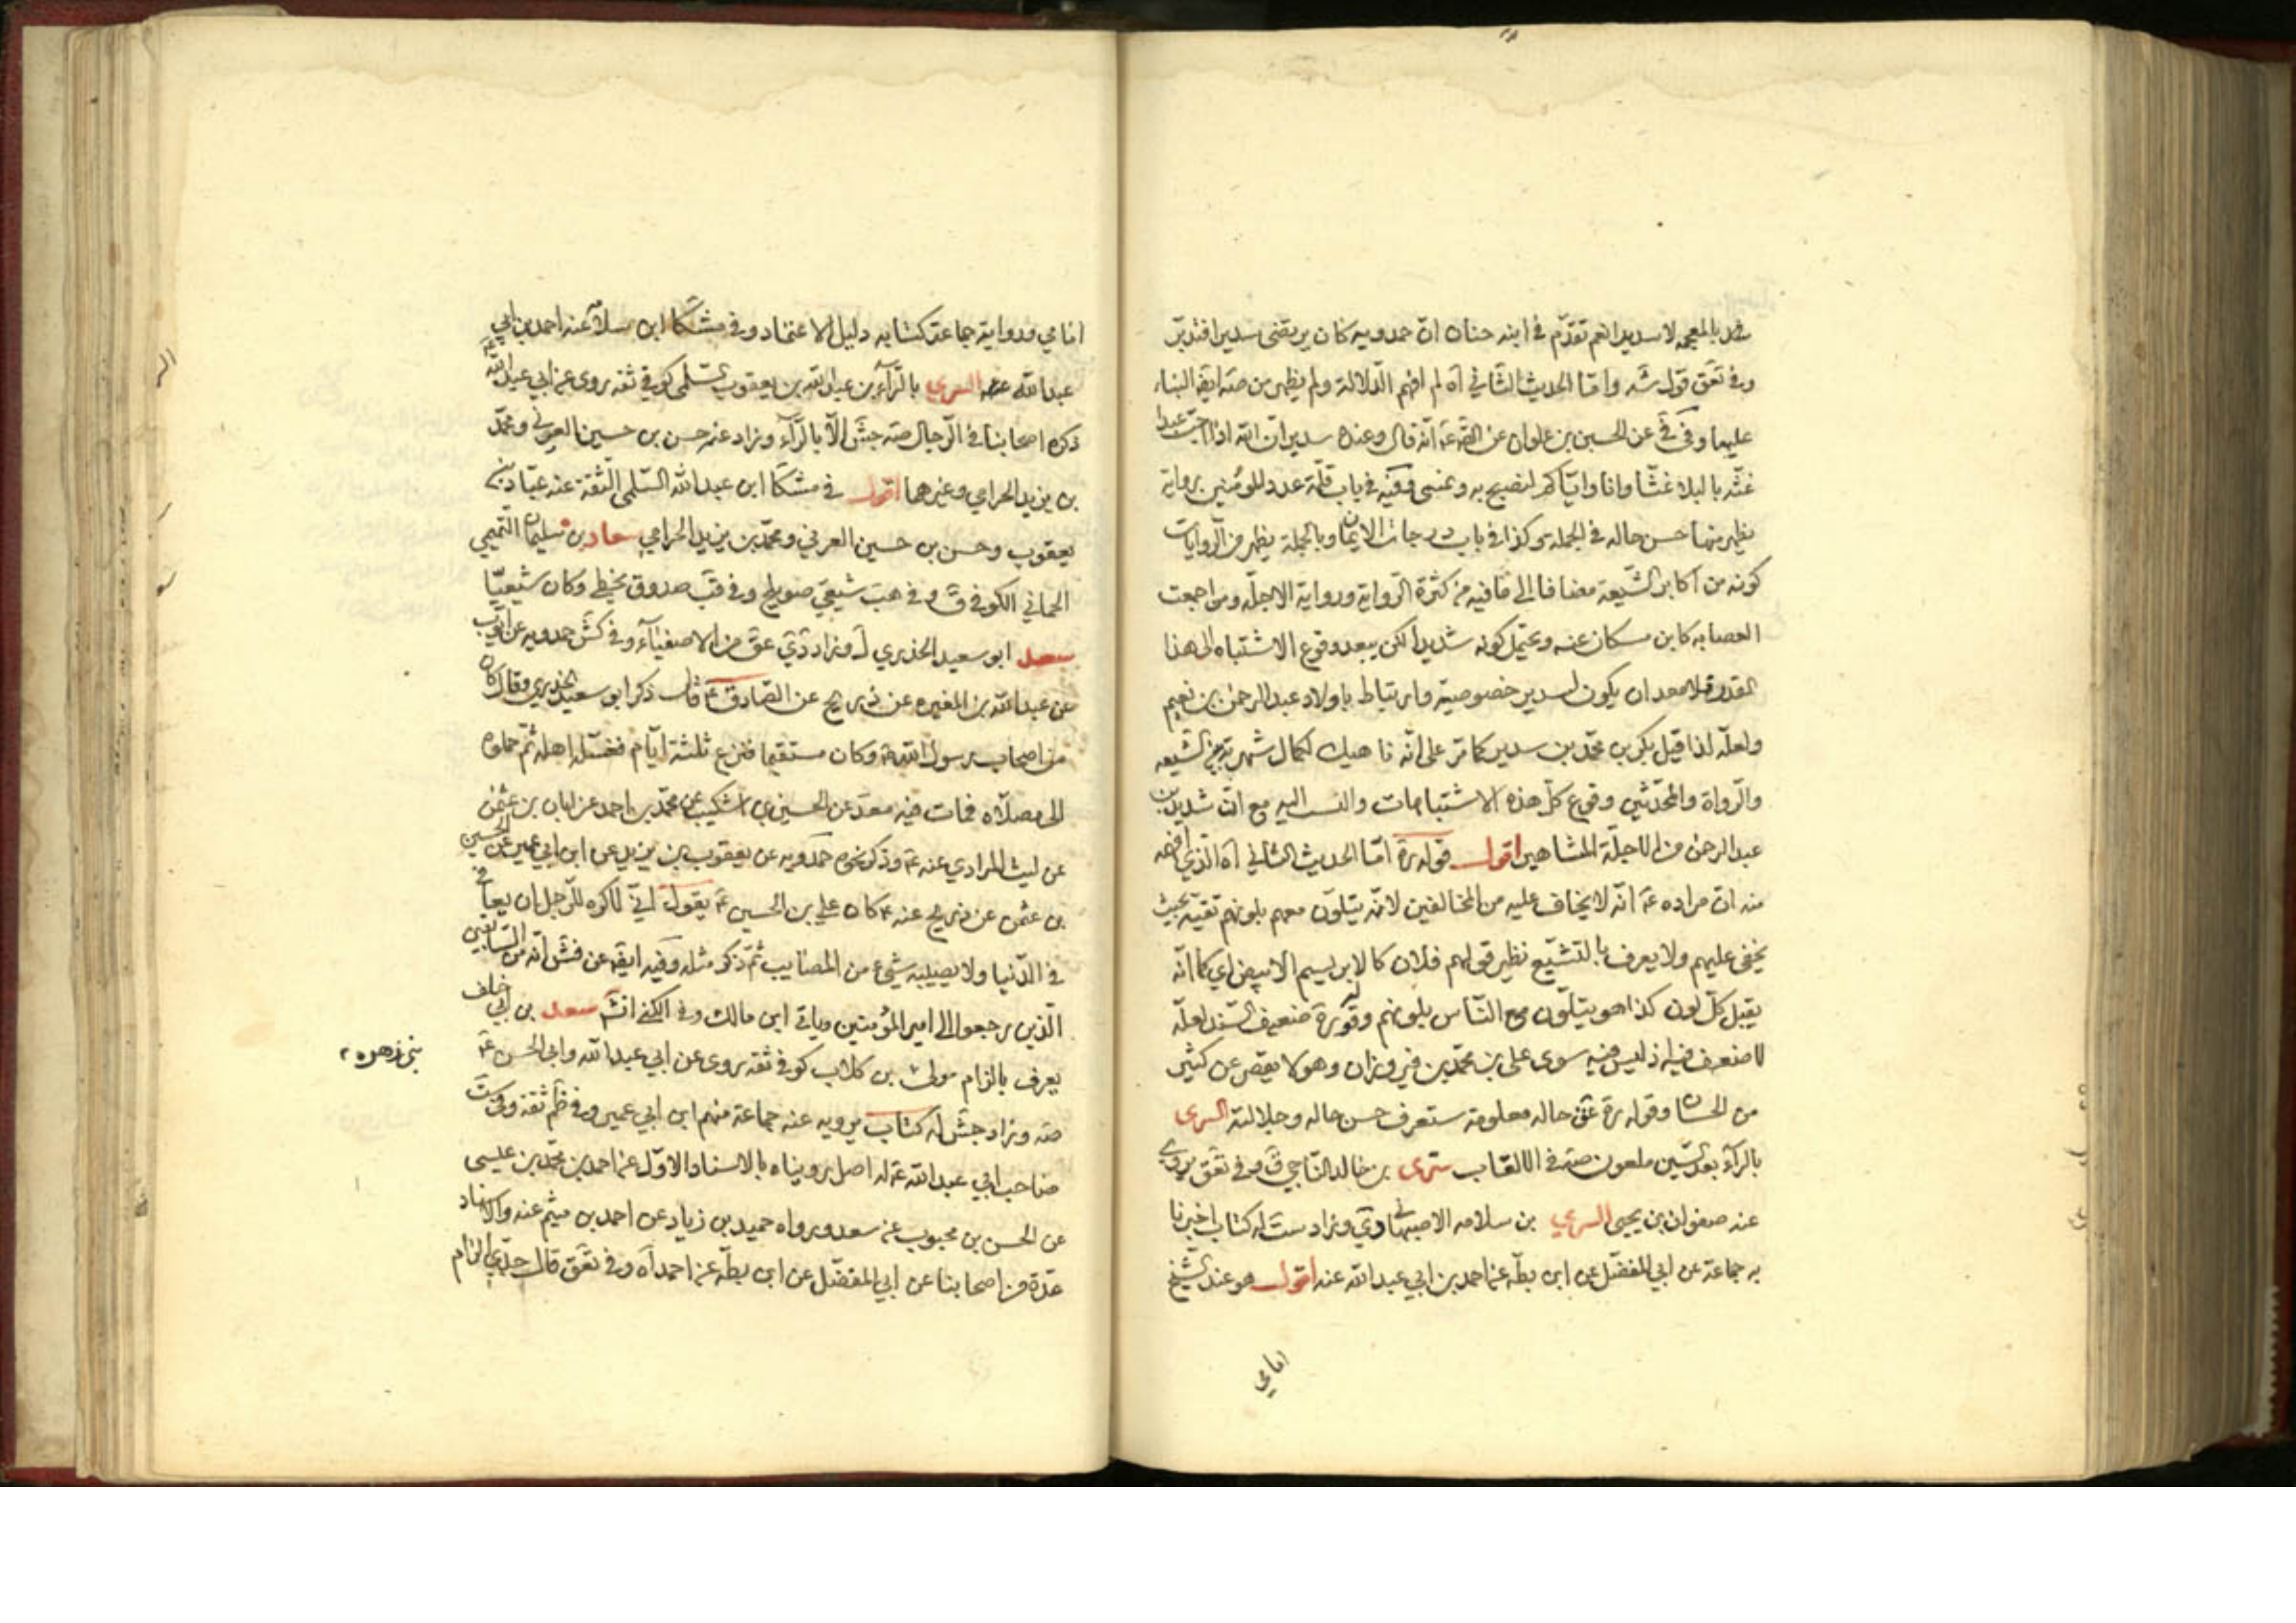 بالمعجمه لا سديد انعم تقدّم في ابنه حنان انّ حمدويه كان يرتضى سديرا فتدبّر
وفي تعق قوله شه وامّا الحديث الثاني آه لم افهم الدّلالة ولم يظهر من صه ايضا البناء
عليها وفي في عن الحسين بن علوان عن انّه قال وعنده سدير انّ الله اذا احبّ عبدا
غتّه بالبلاء غتّا وانا وايّاكم لنصبح به ونمسى وفيه في باب قلّة عدد المؤمنين رواية
يظهر منها حسن حاله في الجملة وكذا في باب درجات الايمان وبالجملة يظهر من الرّوايات
كونه من اكابر الشّيعة مضافا الى ما فيه من كثرة الرّواية ورواية الاجلّه ومن اجمعت
العصابه كابن مسكان عنه ويحتمل كونه شديدا لكن يبعد وقوع الاشتباه الى هذا
القدر ان يكون لسدير خصوصية وارتباط باولاد عبد الرحمن بن نعيم
ولعلّه لذا قيل بكر بن محمّد بن سدير كما مرّ على انّه ناهيك لكمال شهرته بين الشّيعه
والرّواة والمحدّثين وقوع كلّ هذه الاشتباهات والنسب اليه مع انّ شديد بن
عبد الرحمن من الاجلّة المشاهير اقول قوله ره امّا الحديث الثاني آه الذي افهمه
منه انّ مراده عه انّه لا يخاف عليه من المخالفين لانّه يتلوّن معهم بلونهم تقيّة بحيث
يخفى عليهم ولا يعرف بالتشيّع نظير قولهم فلان كالابريسم الابيض اي كما انّه
يقبل كلّ لون كذا هو يتلوّن مع النّاس بلونهم وقوله ره ضعيف السّند لعلّه
لا ضعف فيه اذ ليس فيه سوى علي بن محمّد بن فيروزان وهو لا يقصر عن كثير
من الحسان وقوله ره حاله معلومة ستعرف حسن حاله وجلالته السرى
بالرّاء بعد السّين ملعون صه في الالقاب سرى بن خالد النّاجي ق وفي تعق يروي
عنه صفوان بن يحيى السري بن سلامه الاصبهاني دي وزاد ست له كتاب اخبرنا
به جماعة عن ابي المفضّل عن ابن بطّه عن احمد بن ابي عبد الله عنه اقول هو عند الشّيخ
امامي
امامي ورواية جماعة كتابه دليل الاعتماد وفي مشكا ابن سلامه عنه احمد بن ابي
عبد الله السري بالرّاء بن عبد الله بن يعقوب السّلمي كوفي ثقه روى عن ابي عبد الله عه
ذكره اصحابنا في الرّجال صه جش الّا بالرّاء وزاد عنه حسن بن حسين العرني ومحمّد
بن يزيد الحرامي وغيرهما اقول في مشكا ابن عبد الله السّلمي الثّقة عنه عبّاد بن
يعقوب وحسن بن حسين العرني ومحمّد بن يزيد الحرامي سعاد بن سليمان التّميمي
الحماني الكوفي ق وفي هب شيعي صويلح وفي قب صدوق يخطي وكان شيعيّا
سعد ابو سعيد الخدري ل وزاد دي عق من الاصفياء وفي كش حمدويه عن ايّوب
عن عبد الله بن المغيره عن ذريح عن الصّادق عه قال ذكر ابو سعيد الخدري وقال كان
من اصحاب رسول الله وكان مستقيما فنزع ثلثة ايّام فغسّله اهله ثمّ حملوه
الى مصلّاه فمات فيه معد عن الحسين بن اشكيب عن محمّد بن احمد عن ابان بن عثمن
عن ليث المرادي عنه عه وذكر نحوه حمدويه عن يعقوب بن يزيد عن ابن ابي عمير عن الحسين
بن عثمن عن ذريح عنه عه كان علي بن الحسين عه يقول انّي لاكره للرّجل ان يعافى
في الدّنيا ولا يصيبه شيء من المصايب ثمّ ذكر مثله وفيه ايضا عن فش انّه من السّابقين
الّذين رجعوا الى امير المؤمنين وياتي ابن مالك وفي الكنى انش سعد بن ابي خلف
يعرف بالزام مولى بن كلاب كوفي ثقه روى عن ابي عبد الله وابي الحسن عه
بني زهره
صه وزاد جش له كتاب يرويه عنه جماعة منهم ابن ابي عمير وفي ظم ثقة وفي ست
صاحب ابي عبد الله عه له اصل رويناه بالاسناد الاوّل عن احمد بن محمّد بن عيسى
عن الحسن بن محبوب عن سعد ورواه حميد بن زياد عن احمد بن ميثم عنه والاسناد
عدّة من اصحابنا عن ابي المفضّل عن ابن بطّه عن احمد آه وفي تعق قال جدّي الزام